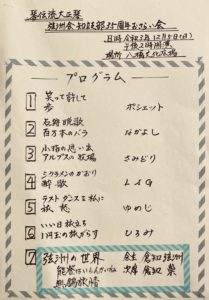 琴伝流大正琴
弦洲会 知立支部35周年おさらい会
日時 令和3年12月5日(日)
午後2時開演
場所 八橋文化広場
プログラム
1 笑って許して
恋 ポシェット
2 長崎晩歌
百万本のバラ なかよし
3 小指の思い出
アルプスの牧場 さみどり
4 シクラメンのかおり
酔歌 LAG
5 ラストダンスは私に
祇愁 ゆめじ
6 いい日旅立ち
1円玉の旅がらす ひろみ
7 弦洲の世界 会主 倉知弦洲
能登はいらんかいね 次席 倉知
無錫旅情